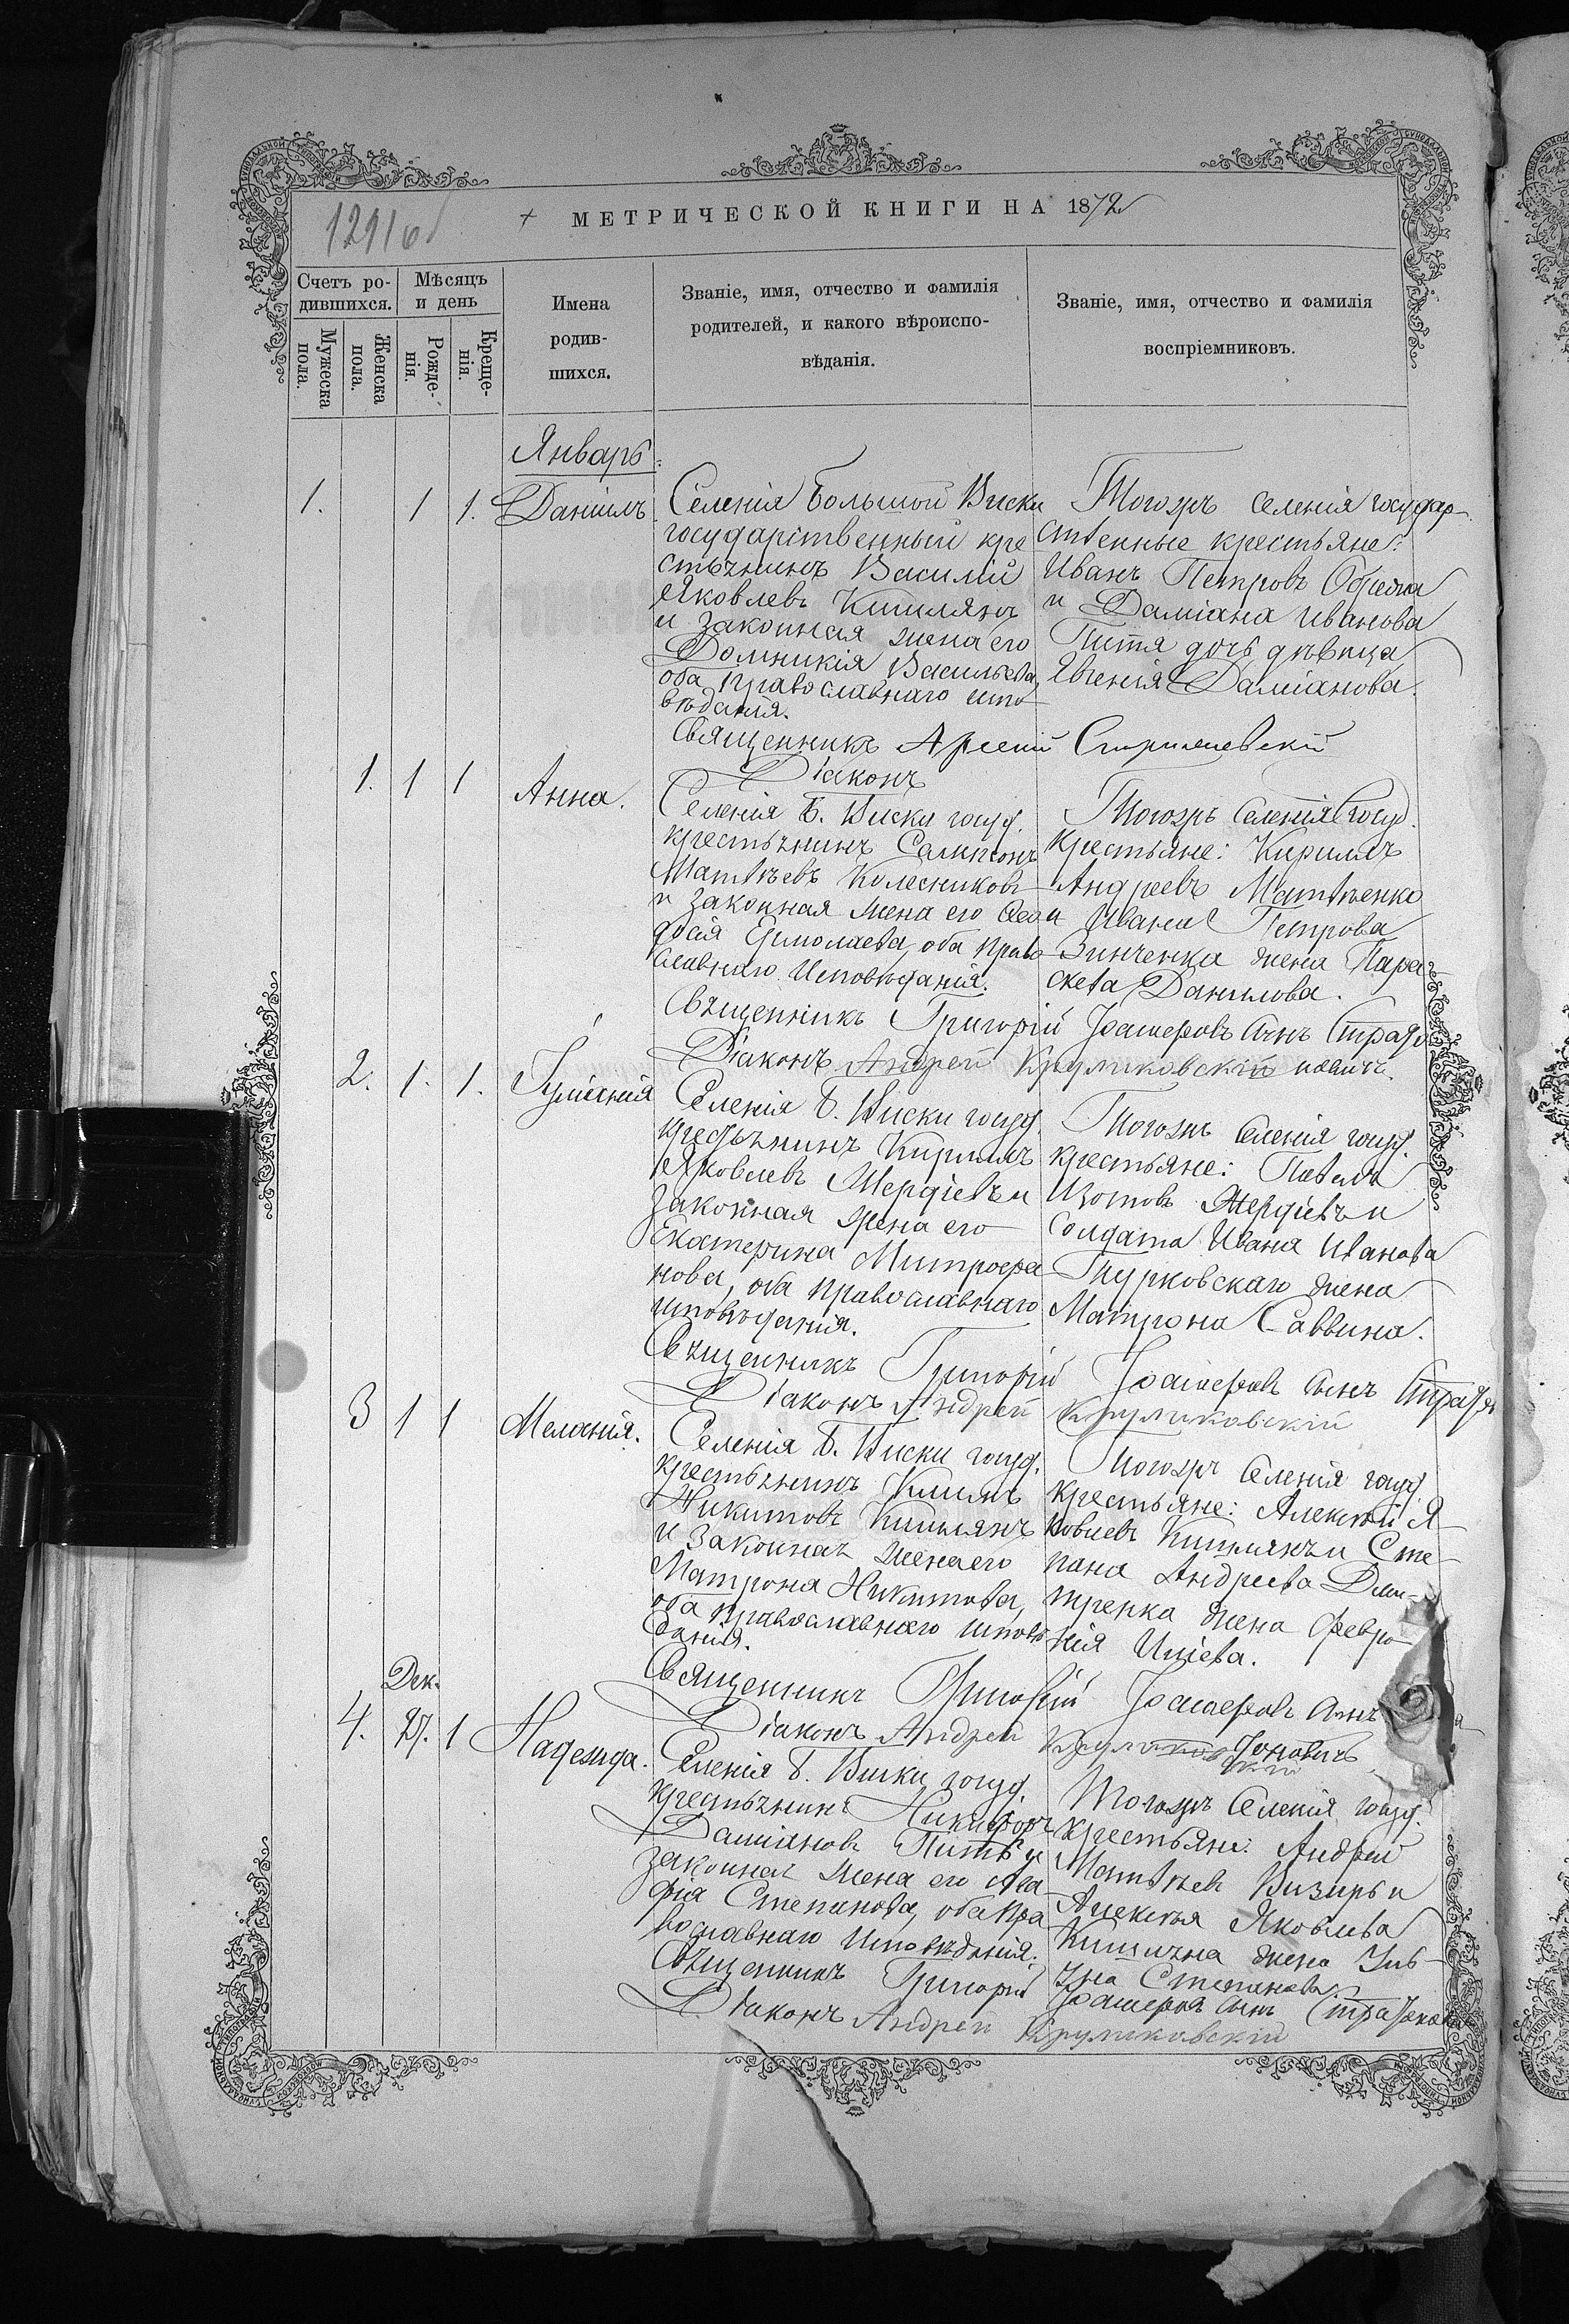 МЕТРИЧЕСКОЙ КНИГИ НА 1872
Счетъ ро-
дившихся.
Мѣсяцъ
и день
Мужеска
пола.
Женска
пола.
Рожде-
нія.
Креще-
нія.
Имена
родив-
шихся.
Званіе, имя, отчество и фамилія
родителей, и какого вѣроиспо-
вѣданія.
Званіе, имя, отчество и фамилія
воспріемниковъ.
Январь
1. 1 1. Даніилъ
Селенія Большой Виски
государственный кре
стьянинъ Василій
Яковлевъ Кишлянъ
и законная жена его
Домникія Васильева,
оба православнаго испо
вѣданія.
Тогожъ селенія государ-
ственные крестьяне:
Иванъ Петровъ
и Даміана Иванова
дочь дѣвица
Евгенія Даміанова.
Священникъ Арсеній
Діаконъ
1. 1 1 Анна.
Селенія Б. Виски госуд.
крестьянинъ Сампсонъ
Матвѣевъ Колесниковъ
и законная жена его Ѳео
досія Ермолаева, оба право
славнаго исповѣданія.
Тогожъ селенія госуд.
крестьяне: Кириллъ
Андреевъ Матвѣенко
и Ивана Петрова
Зинченка жена Пара
скева Данилова.
Священникъ Григорій
Діаконъ Андрей Круликовскій
2. 1. 1. Іуліанія
Селенія Б. Виски госуд.
крестьянинъ Кириллъ
Яковлевъ Мердіевъ и
законная жена его
Екатерина Митрофа
нова, оба православнаго
исповѣданія.
Тогожъ селенія госуд.
крестьяне: Павелъ
Изотовъ Мердіевъ и
солдата Ивана Иванова
Турковскаго жена
Матрона Саввина.
Священникъ Григорій
Діаконъ Андрей Круликовскій
3 1 1 Меланія.
Селенія Б. Виски госуд.
крестьянинъ Климъ
Никитовъ Кишлянъ
и законная жена его
Матрона Никитова,
оба православнаго исповѣ
данія.
Тогожъ селенія госуд
крестьяне: Алексѣй Я
ковлевъ Кишлянъ и Сте-
пана Андреева Дми-
тренка жена Февро
нія Иліева.
Священникъ Григорій
Діаконъ Андрей
Дек.
4. 27. 1 Надежда.
Селенія Б. Виски госуд.
крестьянинъ Никифоръ
Даміановъ и
законная жена его Ага
фія Степанова, оба пра
вославнаго исповѣданія.
Тогожъ селенія госуд.
крестьяне: Андрей
Матвѣевъ Визиръ и
Алексѣя Яковлева
Кишляна жена
Степанова.
Священникъ Григорій
Діаконъ Андрей Круликовскій